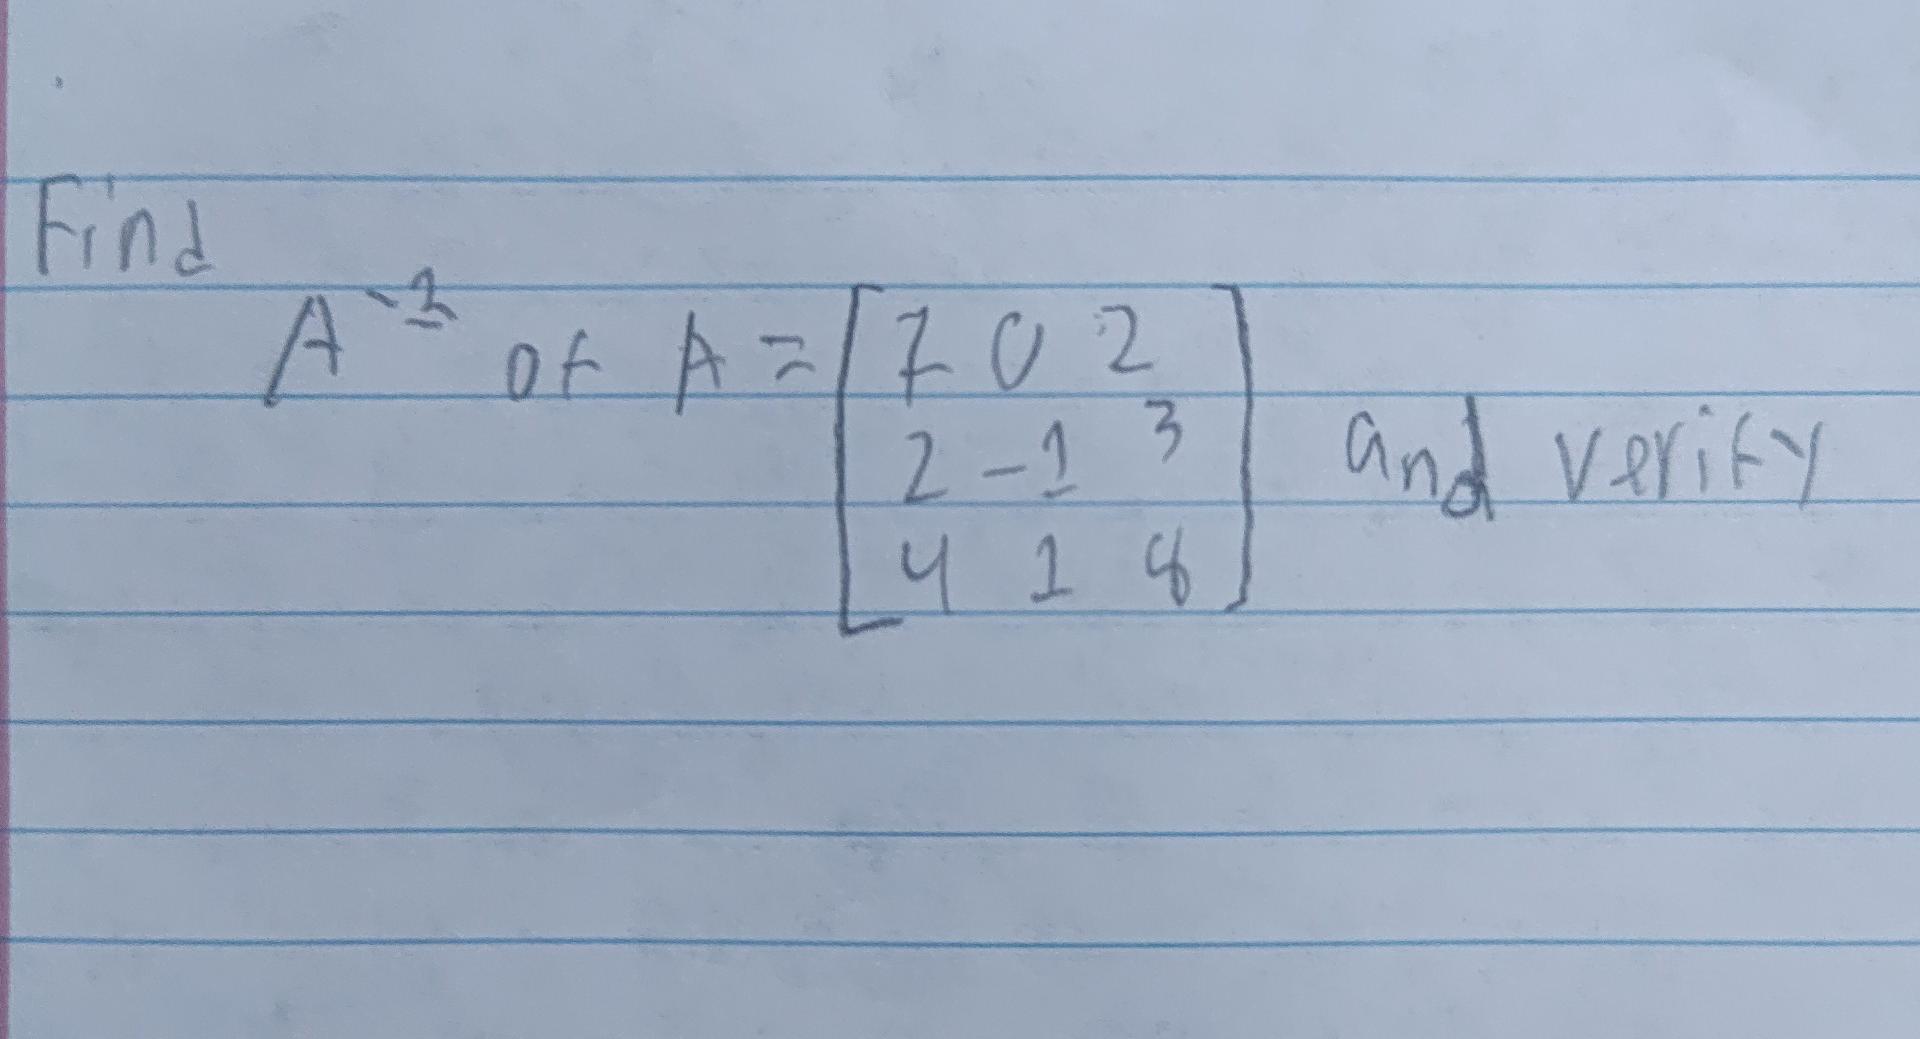 Find
A⁻¹ of A = [7 0 2
2 -1 3
4 1 8] and verify